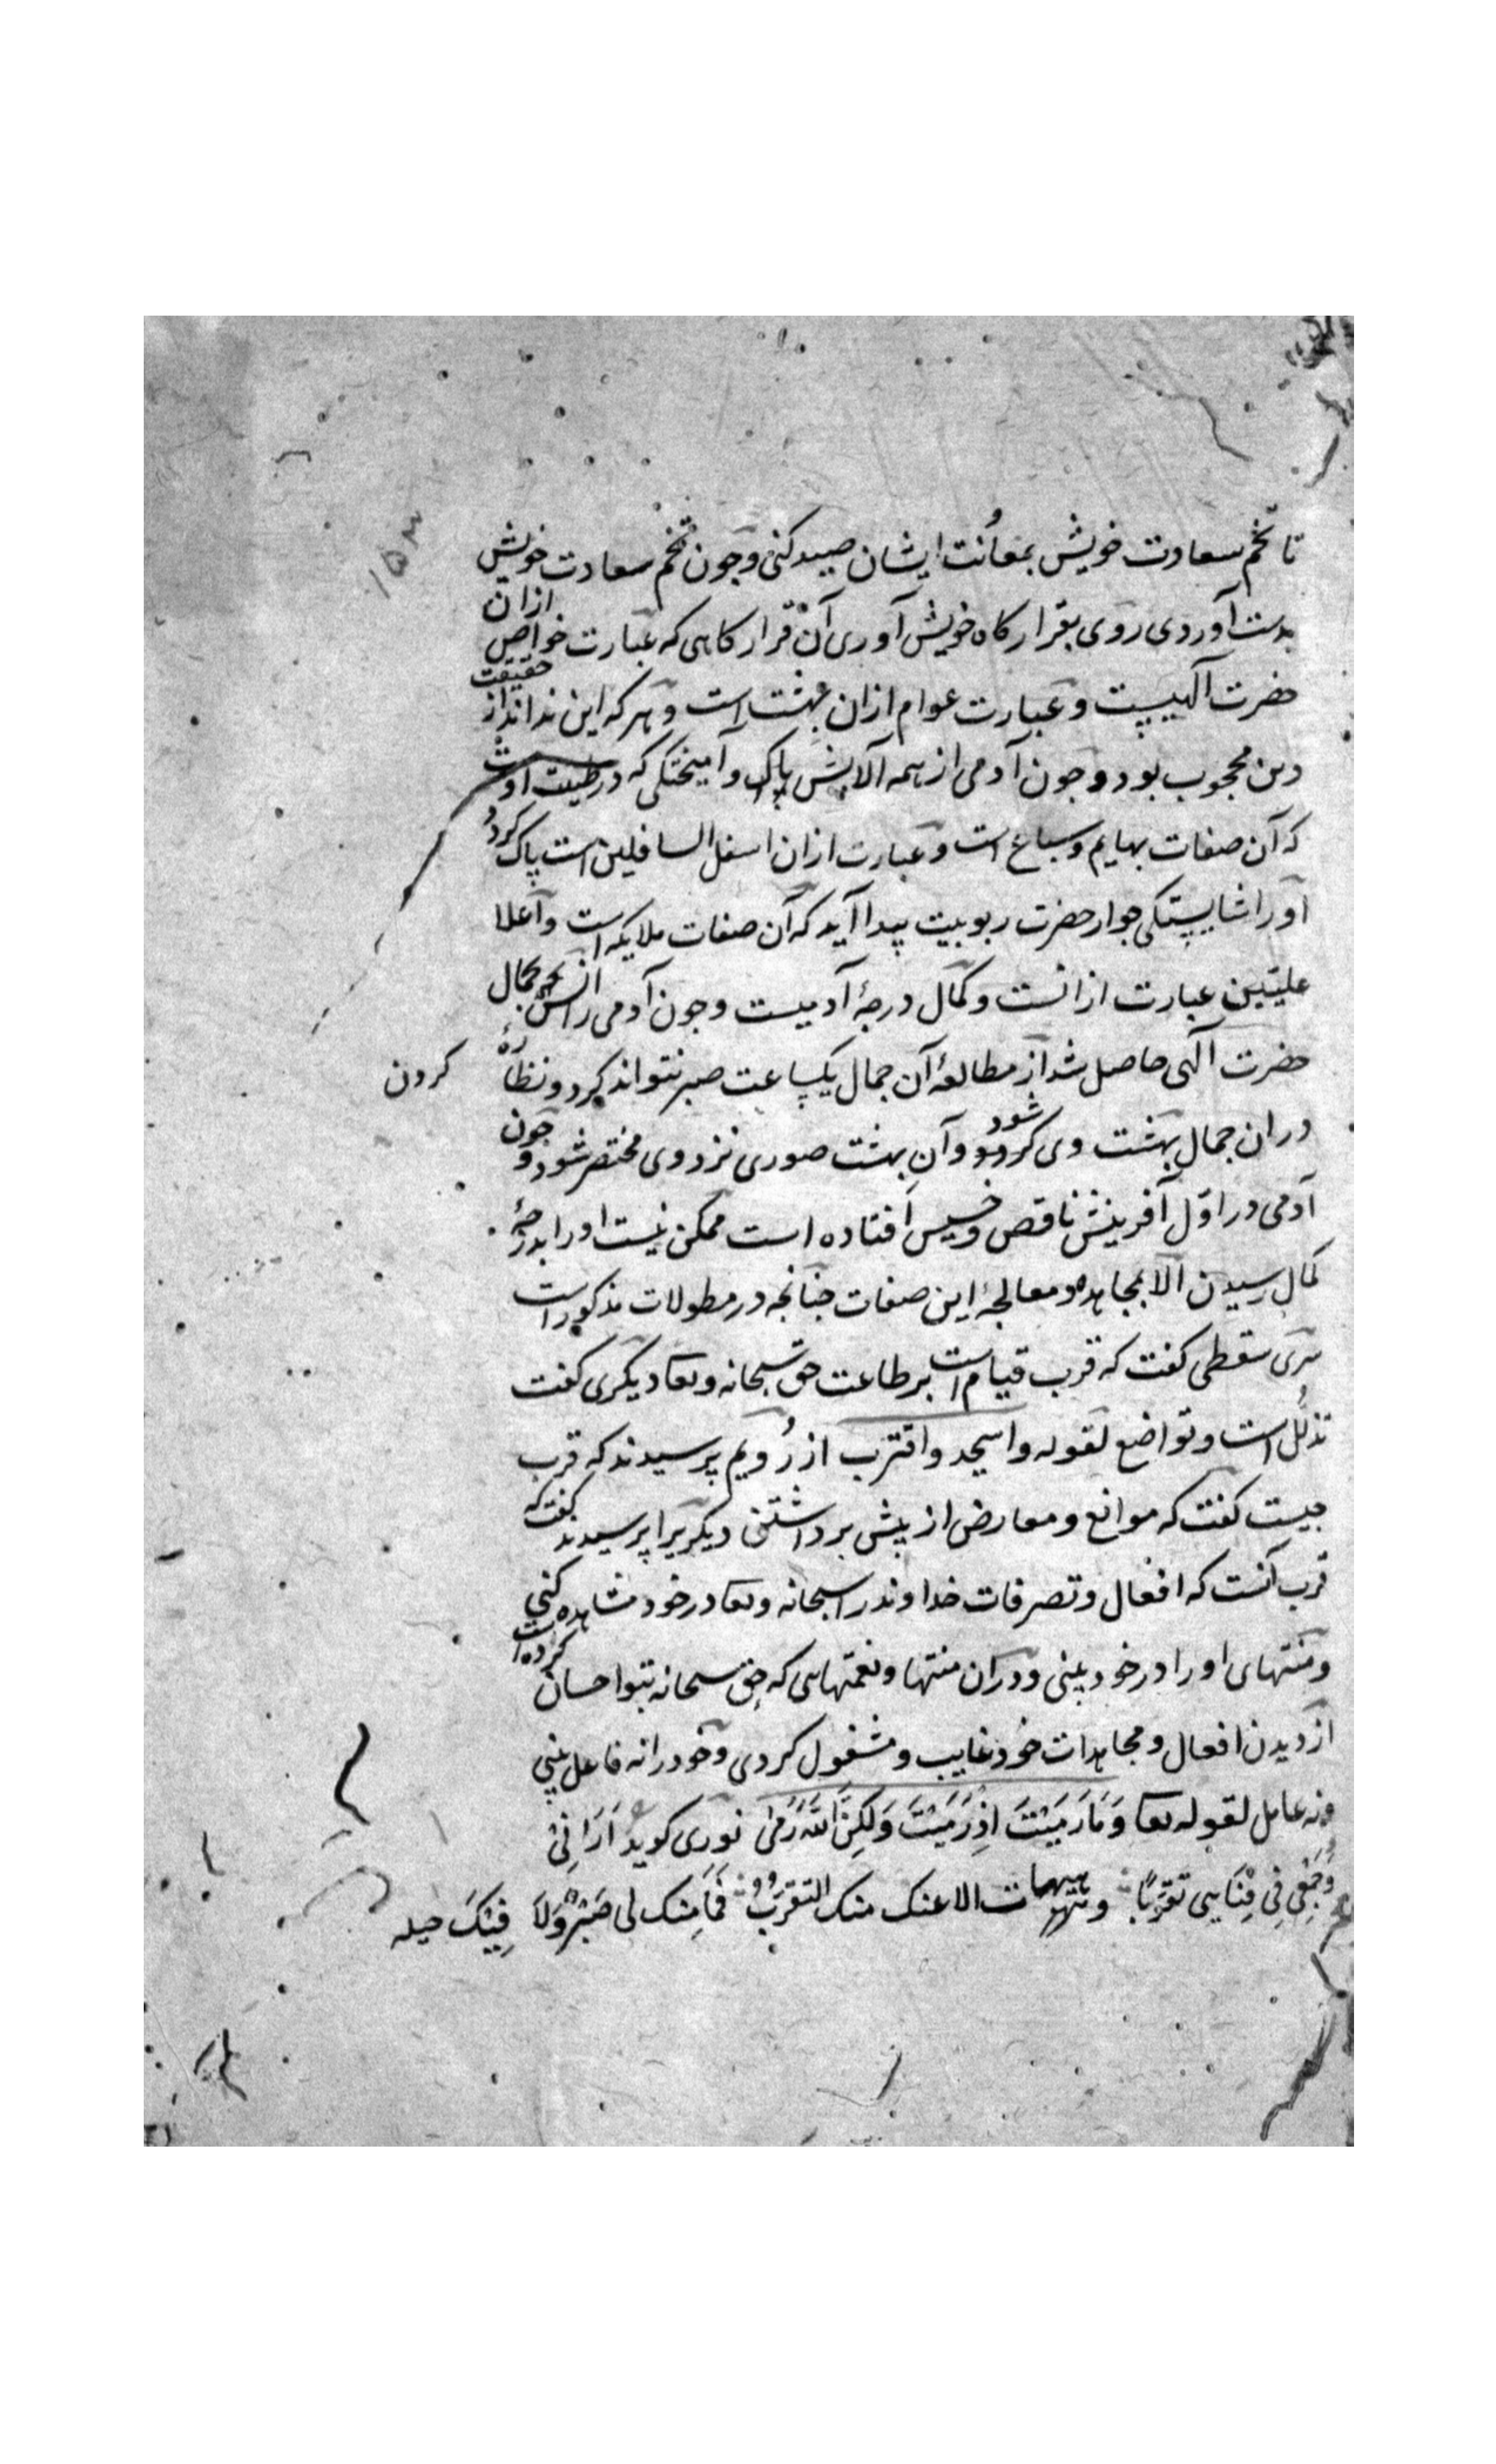 ۱۵۳
تا تخم سعادت خویش بمعاونت ایشان صید کنی و جون تخم سعادت خویش
بدست آوردی روی بقرار کاه خویش آوری آن قرار کاهی که عبارت خواص ازان
حضرت آلهییت و عبارت عوام ازان بهشت است و هر که این نداند از حقیقت
دین محجوب بود و جون آدمی از همه آلایش پاک و آمیختکی که در طینت اوست
که آن صفات بهایم و سباع است و عبارت ازان اسفل السافلین است پاک کردد
اورا شایستکی جوار حضرت ربوبیت پیدا آید که آن صفات ملایکه است و اعلا
علیین عبارت ازانست و کمال درجۀ آدمیست و جون آدمی را انس بجمال
حضرت آلهی حاصل شد از مطالعۀ آن جمال یکساعت صبر نتواند کرد و نظاره
کردن
دران جمال بهشت وی شود و آن بهشت صوری نزد وی مختصر شود و جون
آدمی در اوّل آفرینش ناقص و خسیس افتاده است ممکن نیست اورا بدرجۀ
کمال رسیدن الا بمجاهده و معالجۀ این صفات جنانجه در مطولات مذکور است
سری سقطی کفت که قرب قیام است بر طاعت حق سبحانه و تعا دیکری کفت
تذلّل است و تواضع لقوله واسجد واقترب از رُویم پرسیدند که قرب
جیست کفت که موانع و معارض از پیش برداشتن دیکریرا پرسیدند کفت که
قرب آنست که افعال و تصرفات خداوند را سبحانه و تعا در خود مشاهده کنی
و منتهای اورا در خود بینی و دران منتها و نعمتهایی که حق سبحانه بتو احسان کرده است
از دیدن افعال و مجاهدات خود غایب و مشغول کردی و خود را نه فاعل بینی
و نه عامل لقوله تعا وَمَا رَمَيْتَ اِذْ رَمَيْتَ وَلَكِنَّ اللّٰهَ رَمَىٰ نوری کوید اَرَانِی
جَمْعِی فِی فَنَایِی تقرّبًا و هیهات الا عنک منک التقرّبُ فَمَا مِنک لی صَبْرٌ وَلَا فِیْکَ حیله